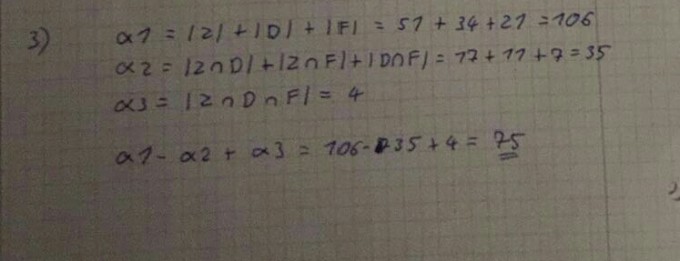 3) α1 = |2| + |D| + |F| = 51 + 34 + 21 = 106
α2 = |2∩D| + |2∩F| + |D∩F| = 17 + 11 + 7 = 35
α3 = |2∩D∩F| = 4
α1 - α2 + α3 = 106 - 35 + 4 = 75